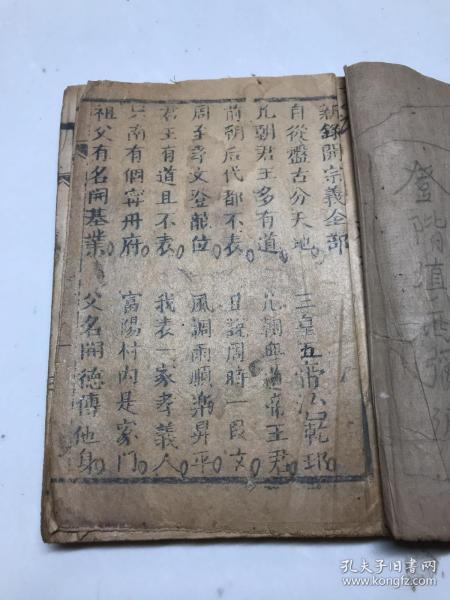 新錄開宗義全部
自從盤古分天地 三皇五帝治乾坤
几朝君王多有道 几朝無道帝王君
前朝后代都不表 且說周時一段文
周至孝文登龍位 風調雨順樂昇平
君王有道且不表 我表一家孝義人
南有個寧丹府 富陽村內是家門
祖父有名開基業 父名開德傳他身
登階值
孔夫子旧书网
www.kongfz.com